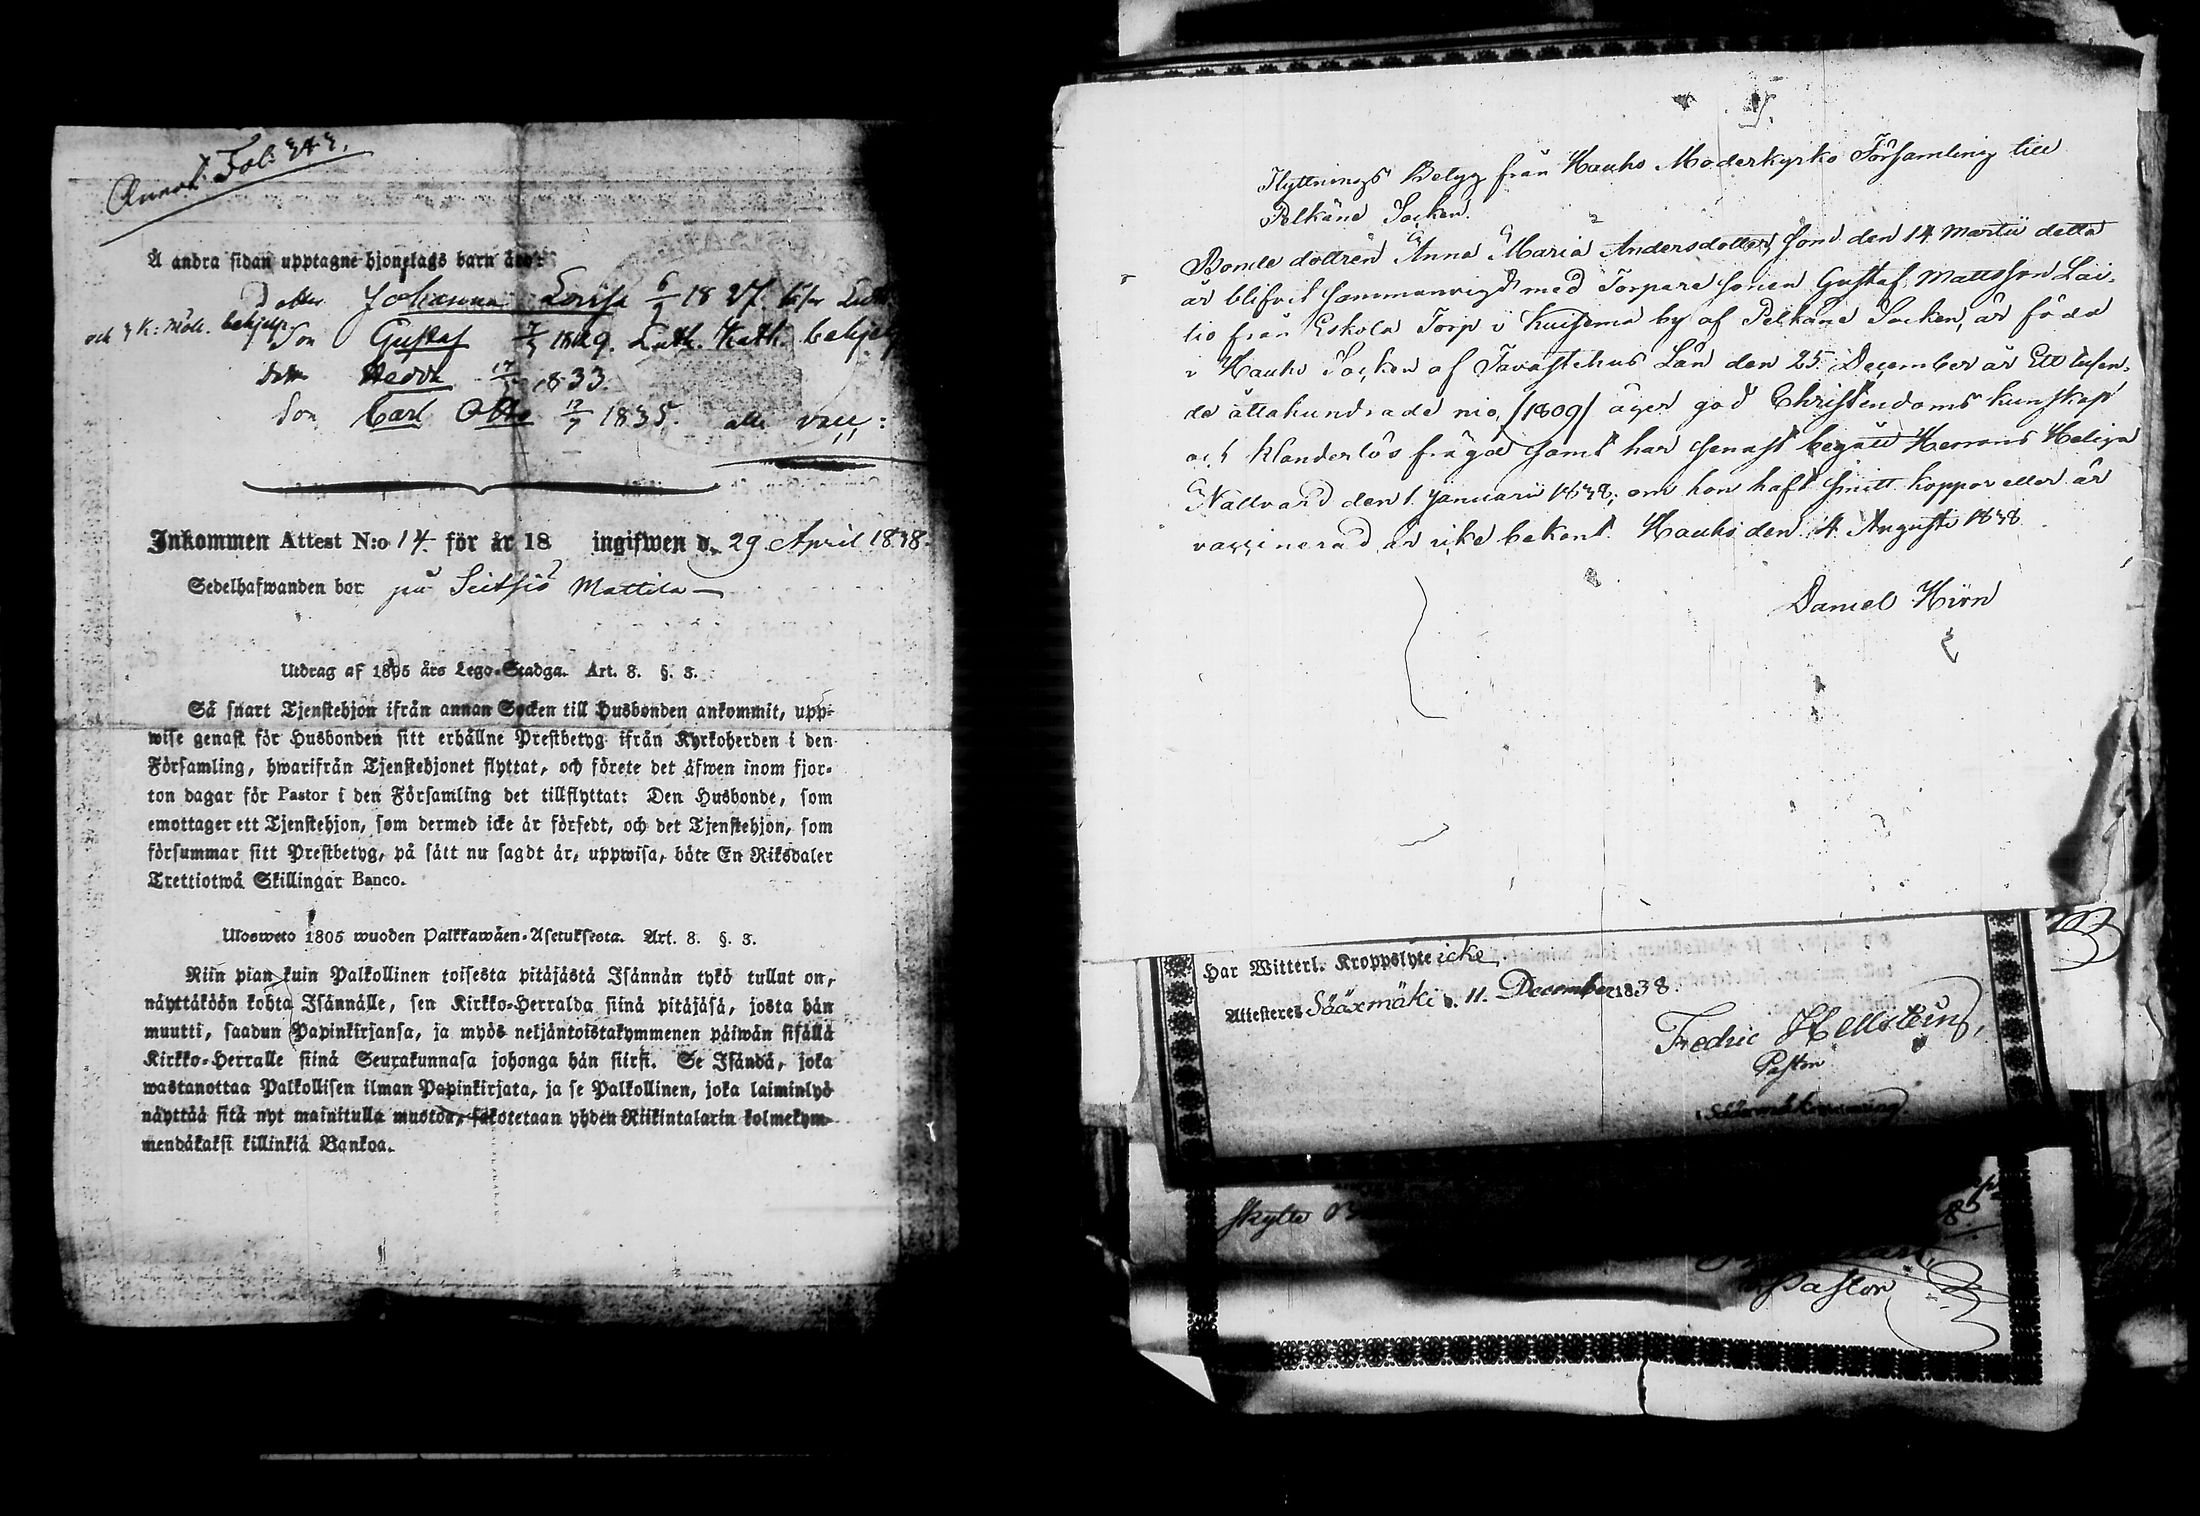 Annot. Fol: 343.
Å andra sidan upptagne hjonelags barn äro:
Dotter Johanna Lovisa 6/1 1827. läser Luth.
och 3 K: Möll. behjelp.
Son Gustaf 7/5 1829. Luth. Kath. behjelp
Dott. Hedda 17/ 1833.
Son Carl Otto 12/7 1835. alle vacc:
Inkommen Attest N:o 14. för år 18 ingifwen d. 29 April 1838.
Sedelhafwanden bor på Seitsiö Mattila
Utdrag af 1805 års Lego-Stadga. Art. 8. §. 3.
Så snart Tjenstehjon ifrån annan Socken till Husbonden ankommit, upp-
wise genast för Husbonden sitt erhållne Prestbetyg ifrån Kyrkoherden i den
Församling, hwarifrån Tjenstehjonet flyttat, och förete det äfwen inom fjor-
ton dagar för Pastor i den Församling det tillflyttat: Den Husbonde, som
emottager ett Tjenstehjon, som dermed icke är försedt, och det Tjenstehjon, som
försummar sitt Prestbetyg, på sätt nu sagdt är, uppwisa, böte En Riksdaler
Trettiotwå Skillingar Banco.
Ulosweto 1805 wuoden Palkkawäen-Asetuksesta. Art. 8. §. 3.
Niin pian kuin Palkollinen toisesta pitäjästä Isännän tykö tullut on,
näyttäköön kohta Isännälle, sen Kirkko-Herralda siinä pitäjäsä, josta hän
muutti, saadun Papinkirjansa, ja myös neljäntoistakymmenen päiwän sisällä
Kirkko-Herralle siinä Seurakunnasa johonga hän siirsi. Se Isändä, joka
wastanottaa Palkollisen ilman Papinkirjata, ja se Palkollinen, joka laiminlyö
näyttää sitä nyt mainitulla muotoa, sakotetaan yhden Riikintalarin kolmekym-
mendäkaksi killinkiä Bankoa.
Flyttnings Betyg från Hauho Moderkyrko Församling till
Pelkäne Socken.
Bonde dottren Anna Maria Andersdotter, som den 14 Martii detta
år blifvit sammanvigd med Torpare sonen Gustaf Mattsson Lai-
tio från Eskola Torp i Kuisema by af Pelkäne Socken, är född
i Hauho Socken af Tavastehus Län den 25 December år Ett tusen-
de åttahundrade nio, /1809/ äger god Christendoms kunskap
och klanderlös frägd samt har senast begått Herrans Heliga
Nattvard den 1 Januarii 1838; om hon haft smitt koppor eller är
vaccinerad är icke bekant. Hauho den 4 Augusti 1838
Daniel Hirn
Har Witterl. Kroppslyte icke.
Attesteres Sääxmäki d. 11. December 1838.
Fredric Hellsteins,
Pastor
i Sääxmäki
skylte
Pastor